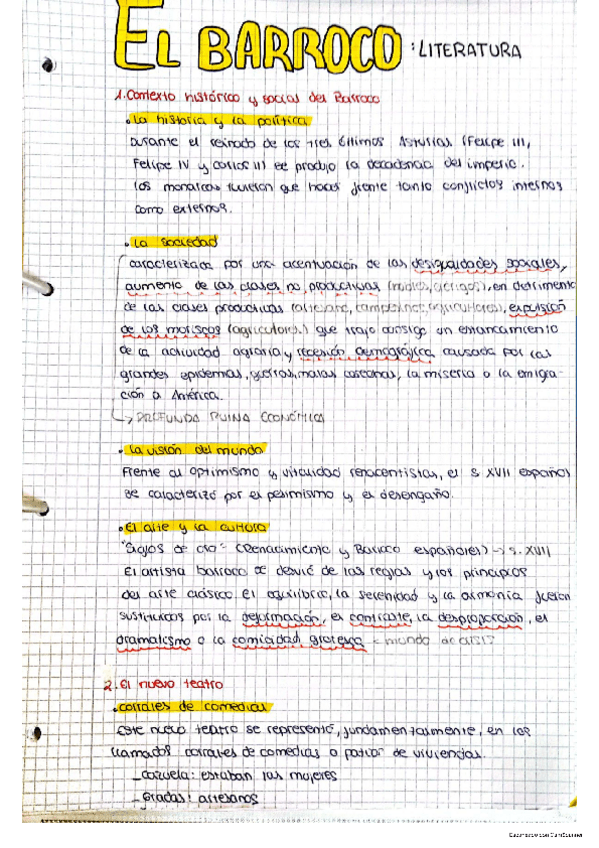 EL BARROCO: LITERATURA
1. Contexto histórico y social del Barroco
• La historia y la política
Durante el reinado de los tres últimos Asturias (Felipe III,
Felipe IV y Carlos II) se produjo la decadencia del imperio.
Los monarcas tuvieron que hacer frente tanto conflictos internos
como externos.
• La sociedad
Caracterizada por una acentuación de las desigualdades sociales,
aumento de las clases no productivas (nobles, clérigos), en detrimento
de las clases productivas (artesanos, campesinos, agricultores), expulsión
de los moriscos (agricultores) que trajo consigo un estancamiento
de la actividad agraria y recesión demográfica causada por las
grandes epidemias, guerras, malas cosechas, la miseria o la emigra-
ción a América.
↳ PROFUNDA RUINA ECONÓMICA
• La visión del mundo
Frente al optimismo y vitalidad renacentistas, el s XVII español
se caracterizó por el pesimismo y el desengaño.
• El arte y la cultura
"Siglos de oro" (Renacimiento y Barroco españoles) → s. XVII
El artista barroco se desvió de las reglas y los principios
del arte clásico. El equilibrio, la serenidad y la armonía fueron
sustituidos por la deformación, el contraste, la desproporción, el
dramatismo o la comicidad grotesca = mundo de crisis
2. El nuevo teatro
• corrales de comedias
Este nuevo teatro se representó, fundamentalmente, en los
llamados corrales de comedias o patios de viviendas.
- cazuela: estaban las mujeres
- gradas: artesanos
Escaneado con CamScanner